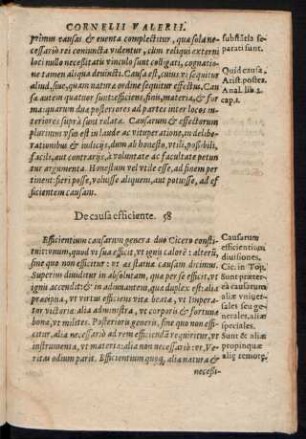 CORNELII VALERII.
primùm causas & euenta complectitur, quæ sola ne-
cessariò rei coniuncta videntur, cùm reliqui externi
loci nullo necessitatis vinculo sunt colligati, cognatio-
ne tamen aliqua deuincti. Causa est, cuius vi sequitur
aliud, siue, quam natura ordine sequitur effectus. Cau-
sa autem quatuor sunt: efficiens, finis, materia, & for-
ma: quarum duæ posteriores ad partes inter locos in-
teriores suprà sunt relatæ. Causarum & effectorum
plurimus vsus est in laude ac vituperatione, in delibe-
rationibus & indicijs, dum ab honesto, vtili, possibili,
facili, aut contrarijs, à voluntate ac facultate petun
tur argumenta. Honestum vel vtile esse, ad finem per
tinent: fieri posse, voluisse aliquem, aut potuisse, ad ef
ficientem causam.
substātia se-
parati sunt.
Quid causa,
Arist. poster.
Anal. lib. 2.
cap. 1.
De causa efficiente. 58
Efficientium causarum genera duo Cicero consti-
tuit: vnum, quod vi sua efficit, vt ignis calorē: alterū,
sine quo non efficitur: vt æs statuæ causam dicimus.
Superius diuiditur in absolutam, quæ per se efficit, vt
ignis accendat: & in adiuuantem, quæ duplex est: alia
præcipua, vt virtus efficiens vitæ beatæ, vt Impera-
tor victoriæ: alia administra, vt corporis & fortunæ
bona, vt milites. Posterioris generis, sine quo non effi-
citur, alia necessariò ad rem efficiendā requiritur, vt
instrumenta, vt materia: alia non necessariò: vt, Ve-
ritas odium parit. Efficientium quoq; alia natura &
necessi-
Causarum
efficientium
diuisiones.
Cic. in Top.
Sunt præter-
ea causarum
aliæ vniuer-
sales seu ge-
nerales, aliæ
speciales.
Sunt & aliæ
propinquæ
aliæ remotę.